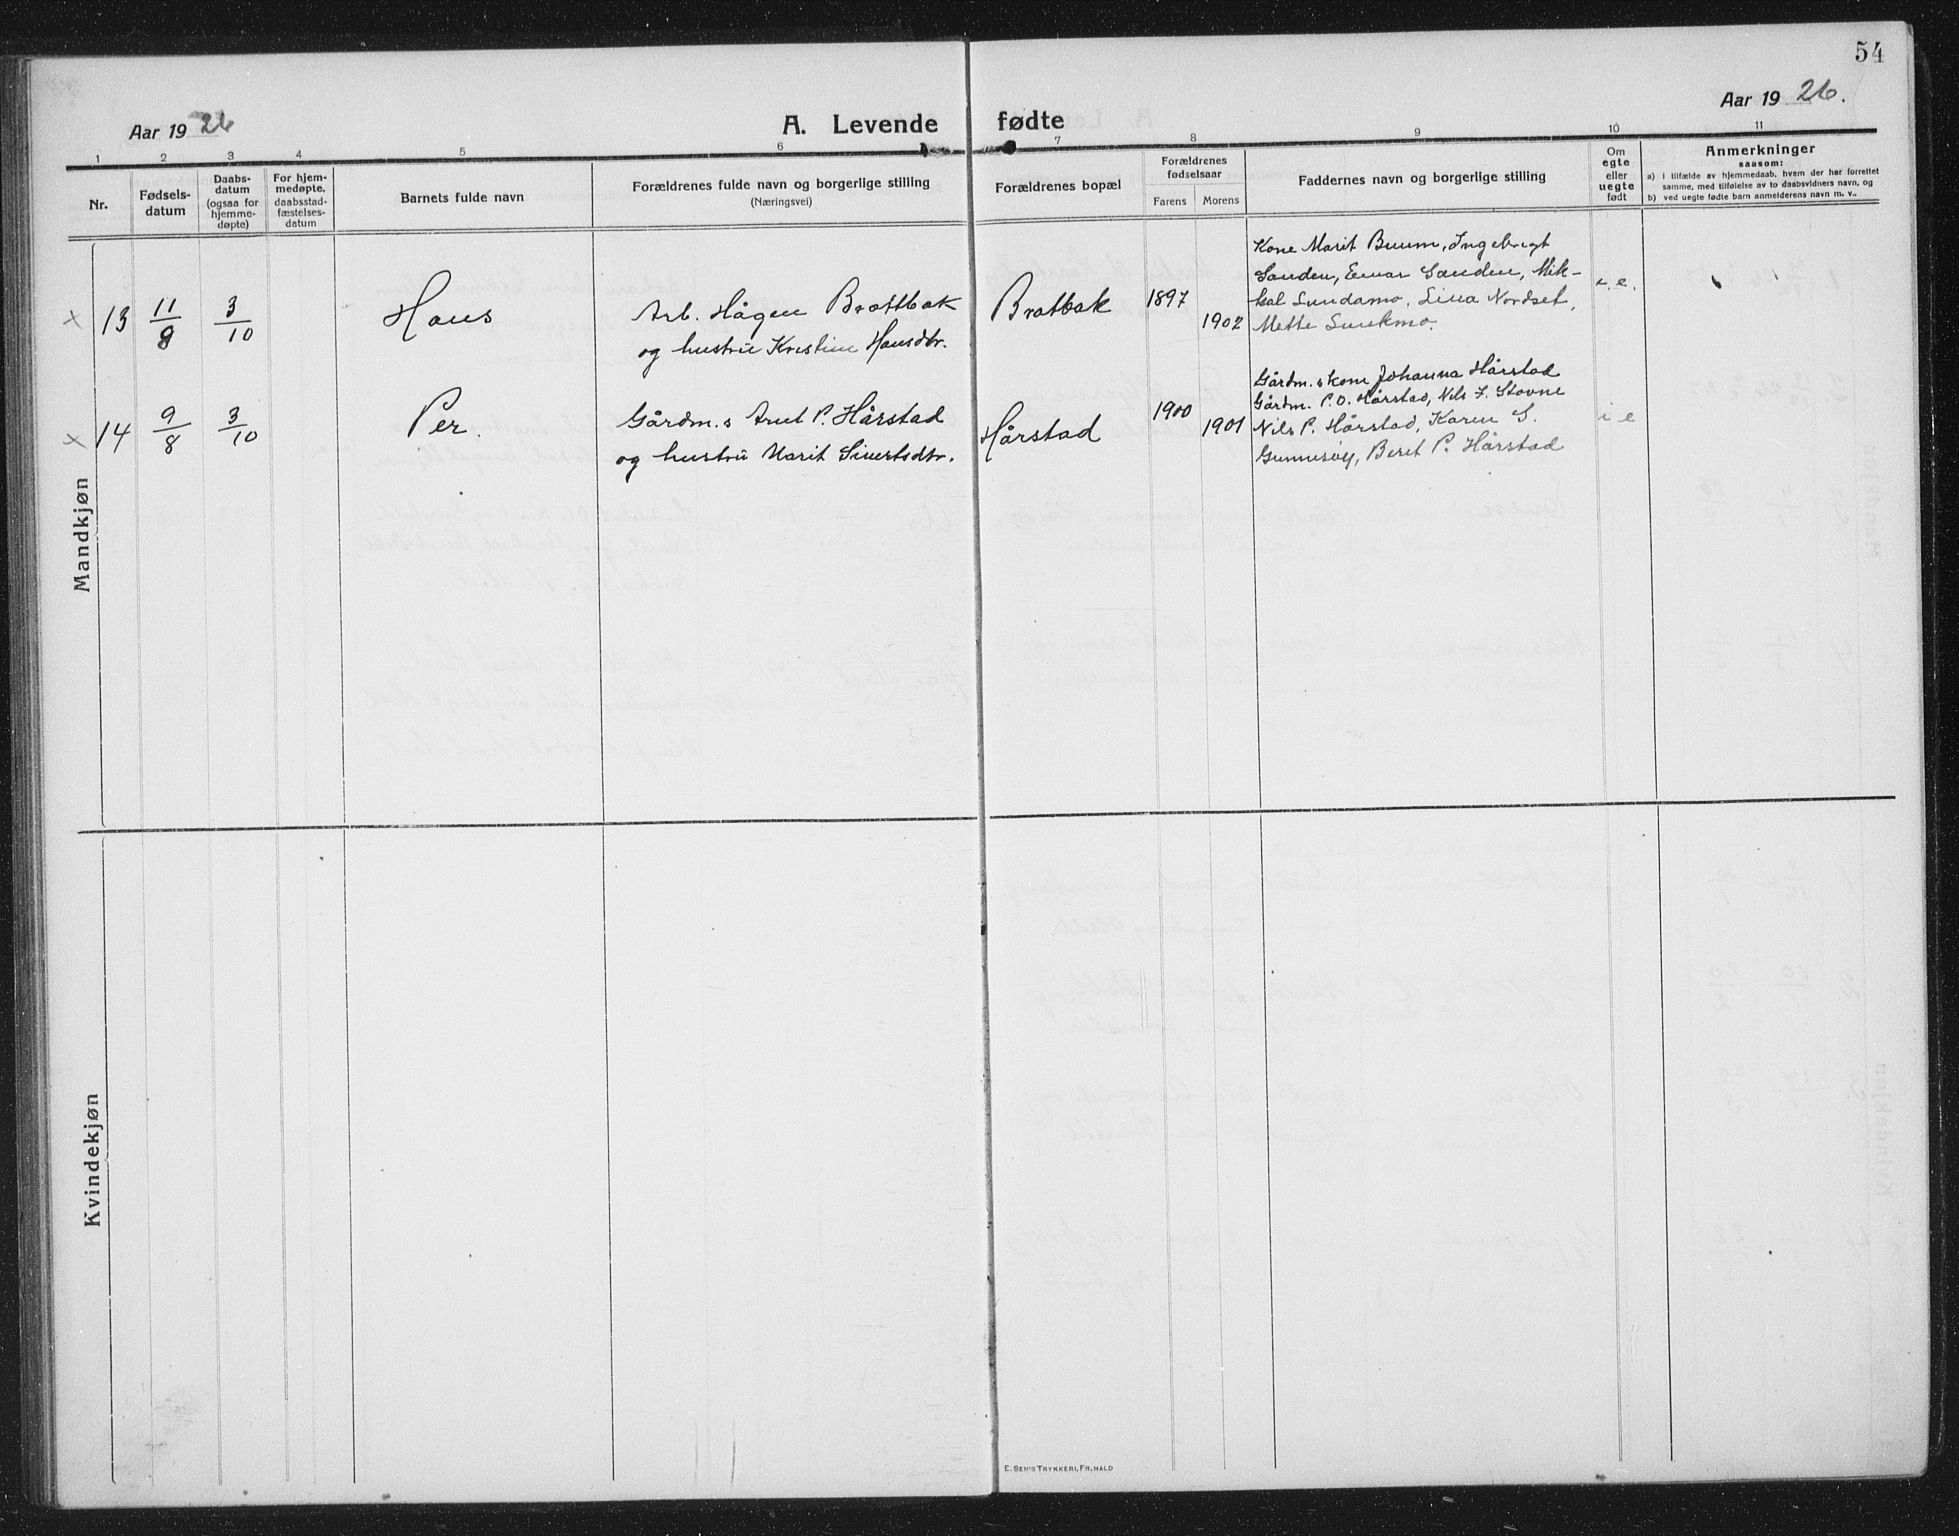 54
Aar 1926
A. Levende fødte
Aar 1926.
1 2 3 4 5 6 7 8 9 10 11
Nr.
Fødsels-
datum
Daabs-
datum
(ogsaa for
hjemme-
døpte)
For hjem-
medøpte,
daabsstad-
fæstelses-
datum
Barnets fulde navn
Forældrenes fulde navn og borgerlige stilling
(Næringsvei)
Forældrenes bopæl
Forældrenes
fødselsaar
Farens Morens
Faddernes navn og borgerlige stilling
Om
egte
eller
uegte
født
Anmerkninger
saasom:
a) I tilfælde av hjemmedaab, hvem der har forrettet
samme, med tilføielse av to daabsvidners navn, og
b) ved uegte fødte barn anmelderens navn m. v..
Mandkjøn
x 13 11/8 3/10 Hans
Arb. Hågen Brattbak
og hustru Kristine Hansdtr.
Bratbak
1897
1902
Kone Marit Buum, Ingebrigt
Sanden, Einar Sanden, Mik-
kal Lundamo, Lina Nordset,
Mette Lunkmo.
x 14 9/8 3/10 Per.
Gårdm.s Arnt P. Hårstad
og hustru Marit Sivertsdtr.
Hårstad
1900
1901
Gårdm.s kone Johanna Hårstad
Gårdm. P.O. Hårstad, Nils J. Stovne
Nils P. Hårstad, Karen S.
Gunnesøy, Beret P. Hårstad
i e
Kvindekjøn
E. Sem's Trykkeri, Fr.hald